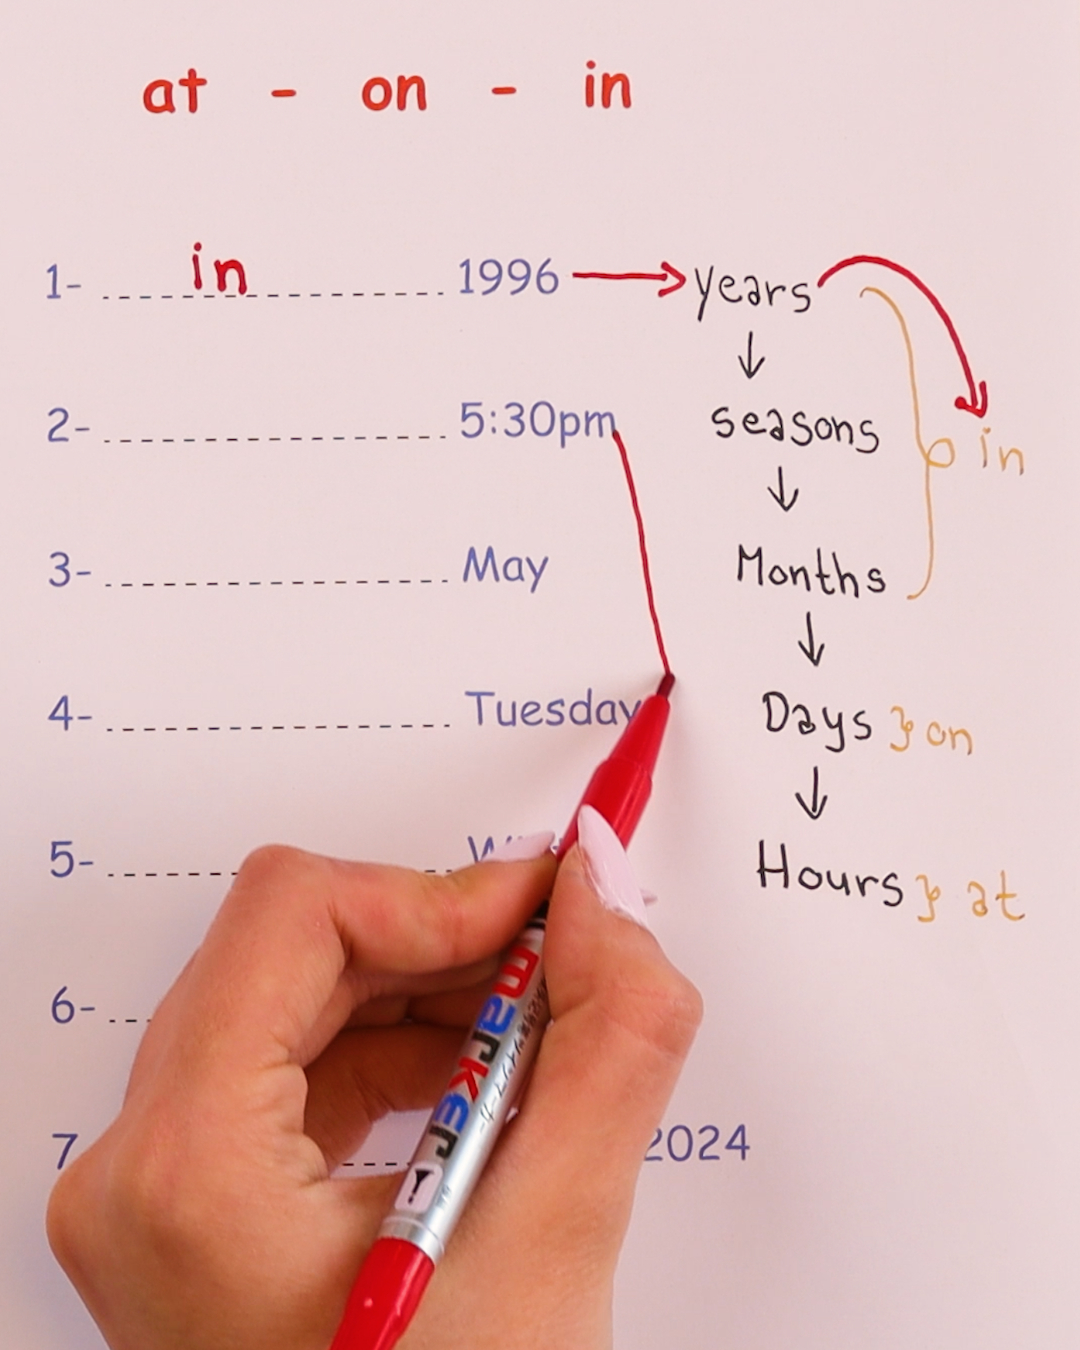 at - on - in
1- in 1996 → years
2- 5:30pm seasons in
3- May Months
4- Tuesday Days } on
5- Hours } at
6-
7 2024
marker